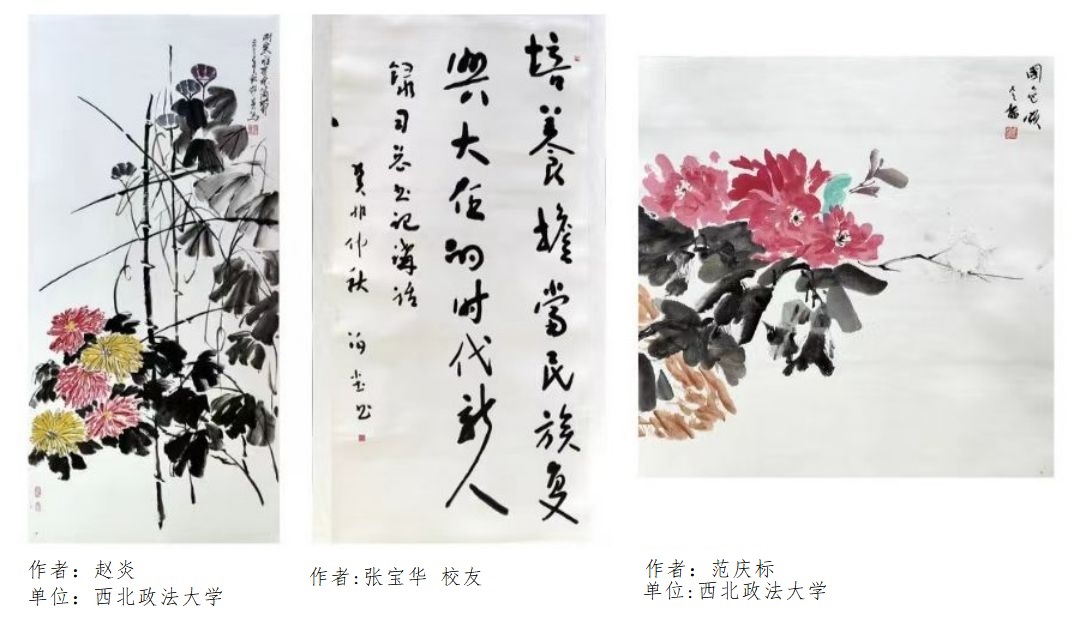 培养担当民族复
兴大任的时代新人
录习总书记讲话
國色頌
作者：赵炎
单位：西北政法大学
作者:张宝华 校友
作者：范庆标
单位:西北政法大学